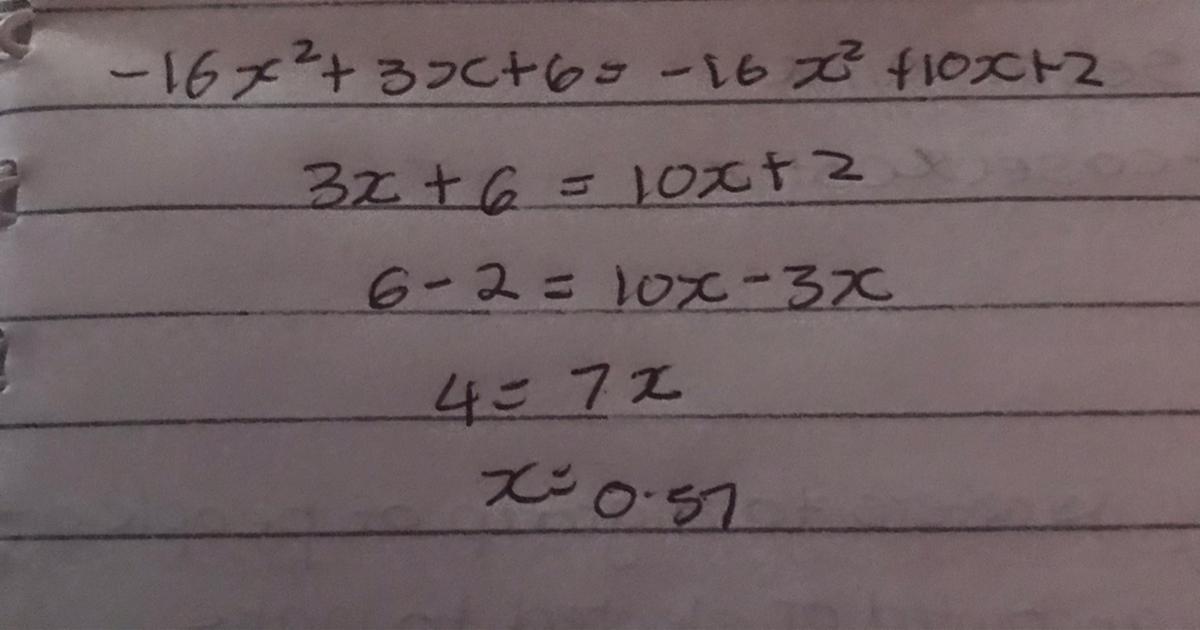 -16x²+3x+6= -16x²+10x+2
3x+6 = 10x+2
6-2=10x-3x
4=7x
x=0.57